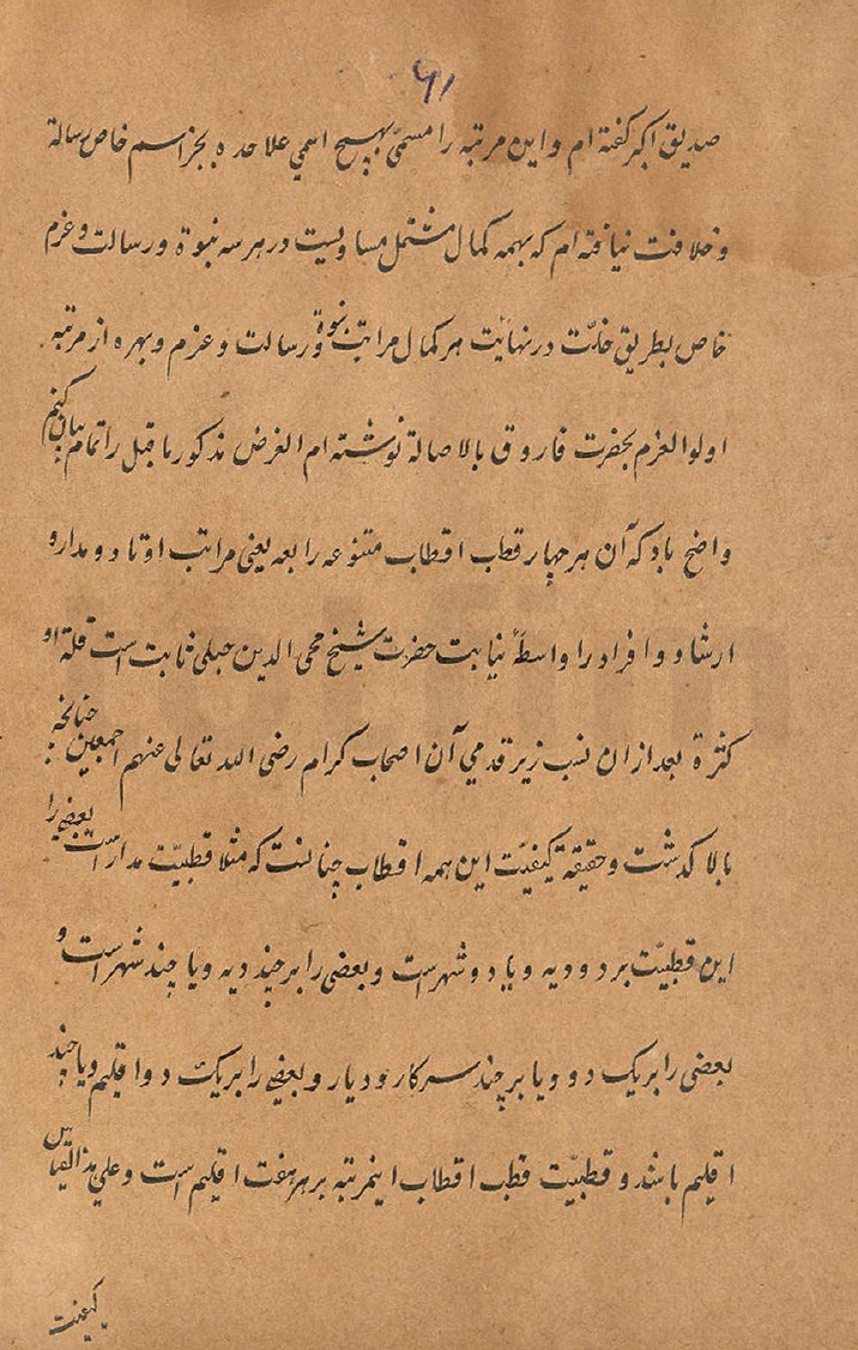 ۶۱
صدیق اکبر گفته ام و این مرتبه را مسمی بهیچ اسمی علاحده بجز اسم خاص رسالة
و خلافت نیافته ام که بهمه کمال مشتمل مساویست در هر سه نبوة و رسالت و عزم
خاص بطریق خلّت در نهایت هر کمال مراتب نبوة و رسالت و عزم و بهره از مرتبه
اولوا العزم بحضرت فاروق بالاصالة نوشته ام الغرض مذکور ماقبل را تمام بیان کنم
واضح باد که آن هر چهار قطب اقطاب متنوعه رابعه یعنی مراتب اوتاد و مدار و
ارشاد و افراد را واسطهٔ نیابت حضرت شیخ محی الدین جبلی ثابت است قلة او
کثرة بعد ازان نسب زیر قدمی آن اصحاب کرام رضی الله تعالی عنهم اجمعین چنانچه
بالا گذشت و حقیقة کیفیّت این همه اقطاب چنانست که مثلا قطبیّت مدار است بعضی را
این قطبیّت بر دو دیه و یا دو شهر است و بعضی را بر چند دیه و یا چند شهر است و
بعضی را بر یک دو و یا بر چند سرکار و دیار و بعضی را بر یک دو اقلیم و یا چند
اقلیم باشد و قطبیّت قطب اقطاب اینمرتبه بر هر هفت اقلیم است و علی هذا القیاس
کیفیت